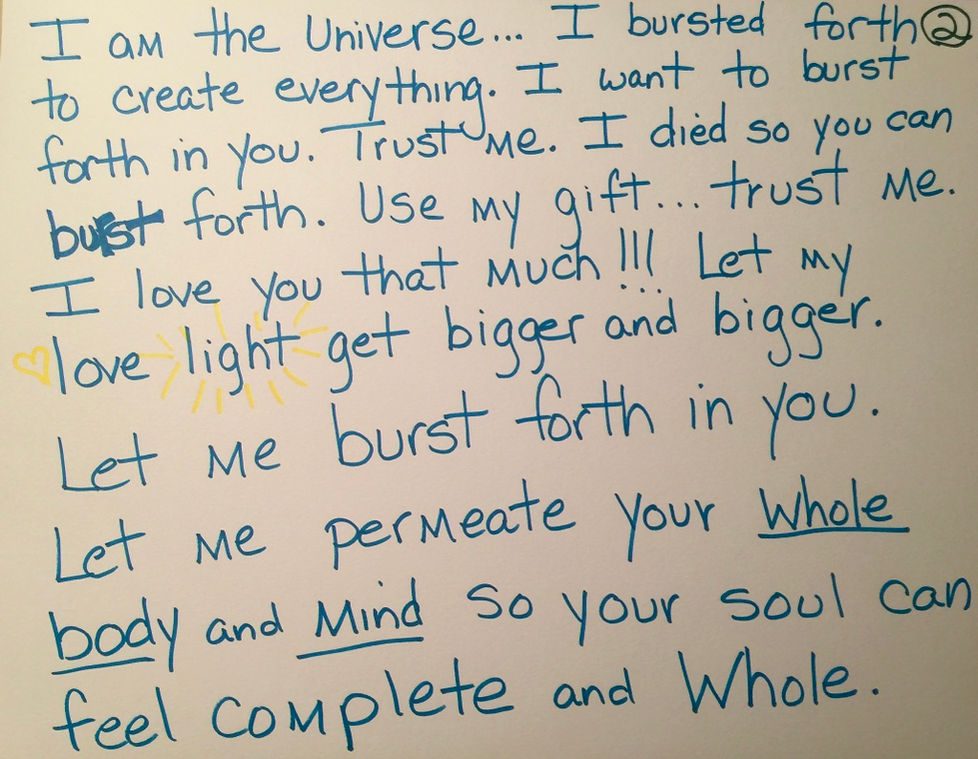 I am the Universe... I bursted forth ②
to create everything. I want to burst
forth in you. Trust Me. I died so you can
burst forth. Use My gift... trust Me.
I love you that Much!!! Let My
love light get bigger and bigger.
Let Me burst forth in you.
Let Me permeate your Whole
body and Mind so your soul can
feel complete and Whole.